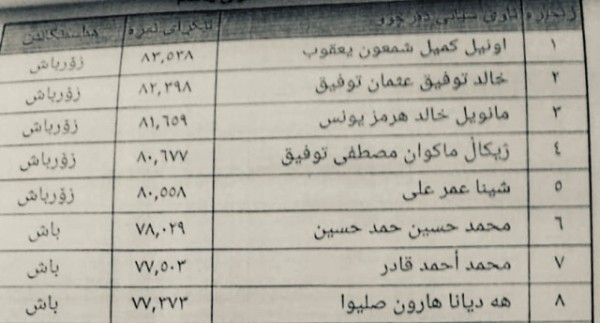 زنجیرە ناوی سیانی دەرچوو تێکڕای نمرە هەڵسەنگاندن
١ اونیل کمیل شمعون یعقوب ٨٣,٥٣٨ زۆرباش
٢ خالد توفیق عثمان توفیق ٨٢,٣٩٨ زۆرباش
٣ مانویل خالد هرمز یونس ٨١,٦٥٩ زۆرباش
٤ ژیکاڵ ماکوان مصطفی توفیق ٨٠,٦٧٧ زۆرباش
٥ شینا عمر علی ٨٠,٥٥٨ زۆرباش
٦ محمد حسین حمد حسین ٧٨,٠٢٩ باش
٧ محمد أحمد قادر ٧٧,٥٠٣ باش
٨ هه دیانا هارون صلیوا ٧٧,٢٧٣ باش